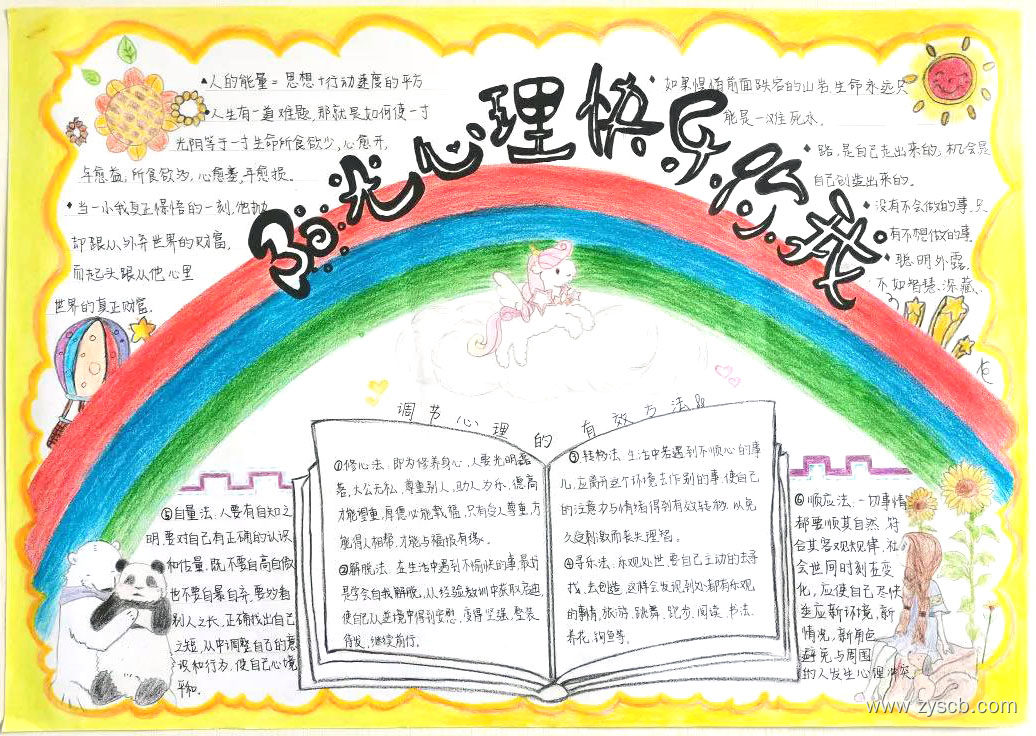 阳光心理快乐你我
♦人的能量=思想+行动速度的平方
♦人生有一道难题,那就是如何使一寸
光阴等于一寸生命所食欲少,心愈开,
年愈益,所食欲多,心愈塞,年愈损。
♦当一个我真正懂悟的一刻,他抛
却跟从外弃世界的财富,
而起头跟从他心里
世界的真正财富。
如果惧怕前面跌宕的山岩生命永远只
能是一滩死水。
♦路,是自己走出来的,机会是
自己创造出来的。
♦没有不会做的事,只
有不想做的事
♦聪明外露,
不如智慧深藏。
调节心理的有效方法
①修心法:即为修养身心,人要光明磊
落,大公无私,尊重别人,助人为乐,德高
才能望重,厚德必能载福,只有受人尊重,方
能得人相帮,才能与福报有缘。
②解脱法:在生活中遇到不愉快的事,最好
是学会自我解脱,从经验教训中获取启迪
使自己从逆境中得到安慰,变得坚强,整装
待发,继续前行。
③转移法,生活中若遇到不顺心的事
儿,应离开这个环境去作别的事,使自己
的注意力与情绪得到有效转移,以免
久受刺激而丧失理智。
④寻乐法:乐观处世,要自己主动的去寻
找,去创造,这样会发现到处都有乐观
的事情,旅游,跳舞,跑步,阅读,书法,
养花,钓鱼等。
⑤自量法:人要有自知之
明,要对自己有正确的认识
和估量,既不要自高自傲
也不要自暴自弃,要妙着
别人之长,正确找出自己
之短,从中调整自己的意
识和行为,使自己心境
平和。
⑥顺应法:一切事情
都要顺其自然,符
合其客观规律,社
会世间时刻在变
化,应使自己尽快
适应新环境,新
情况,新角色
避免与周围
的人发生心理冲突
www.zyscb.com